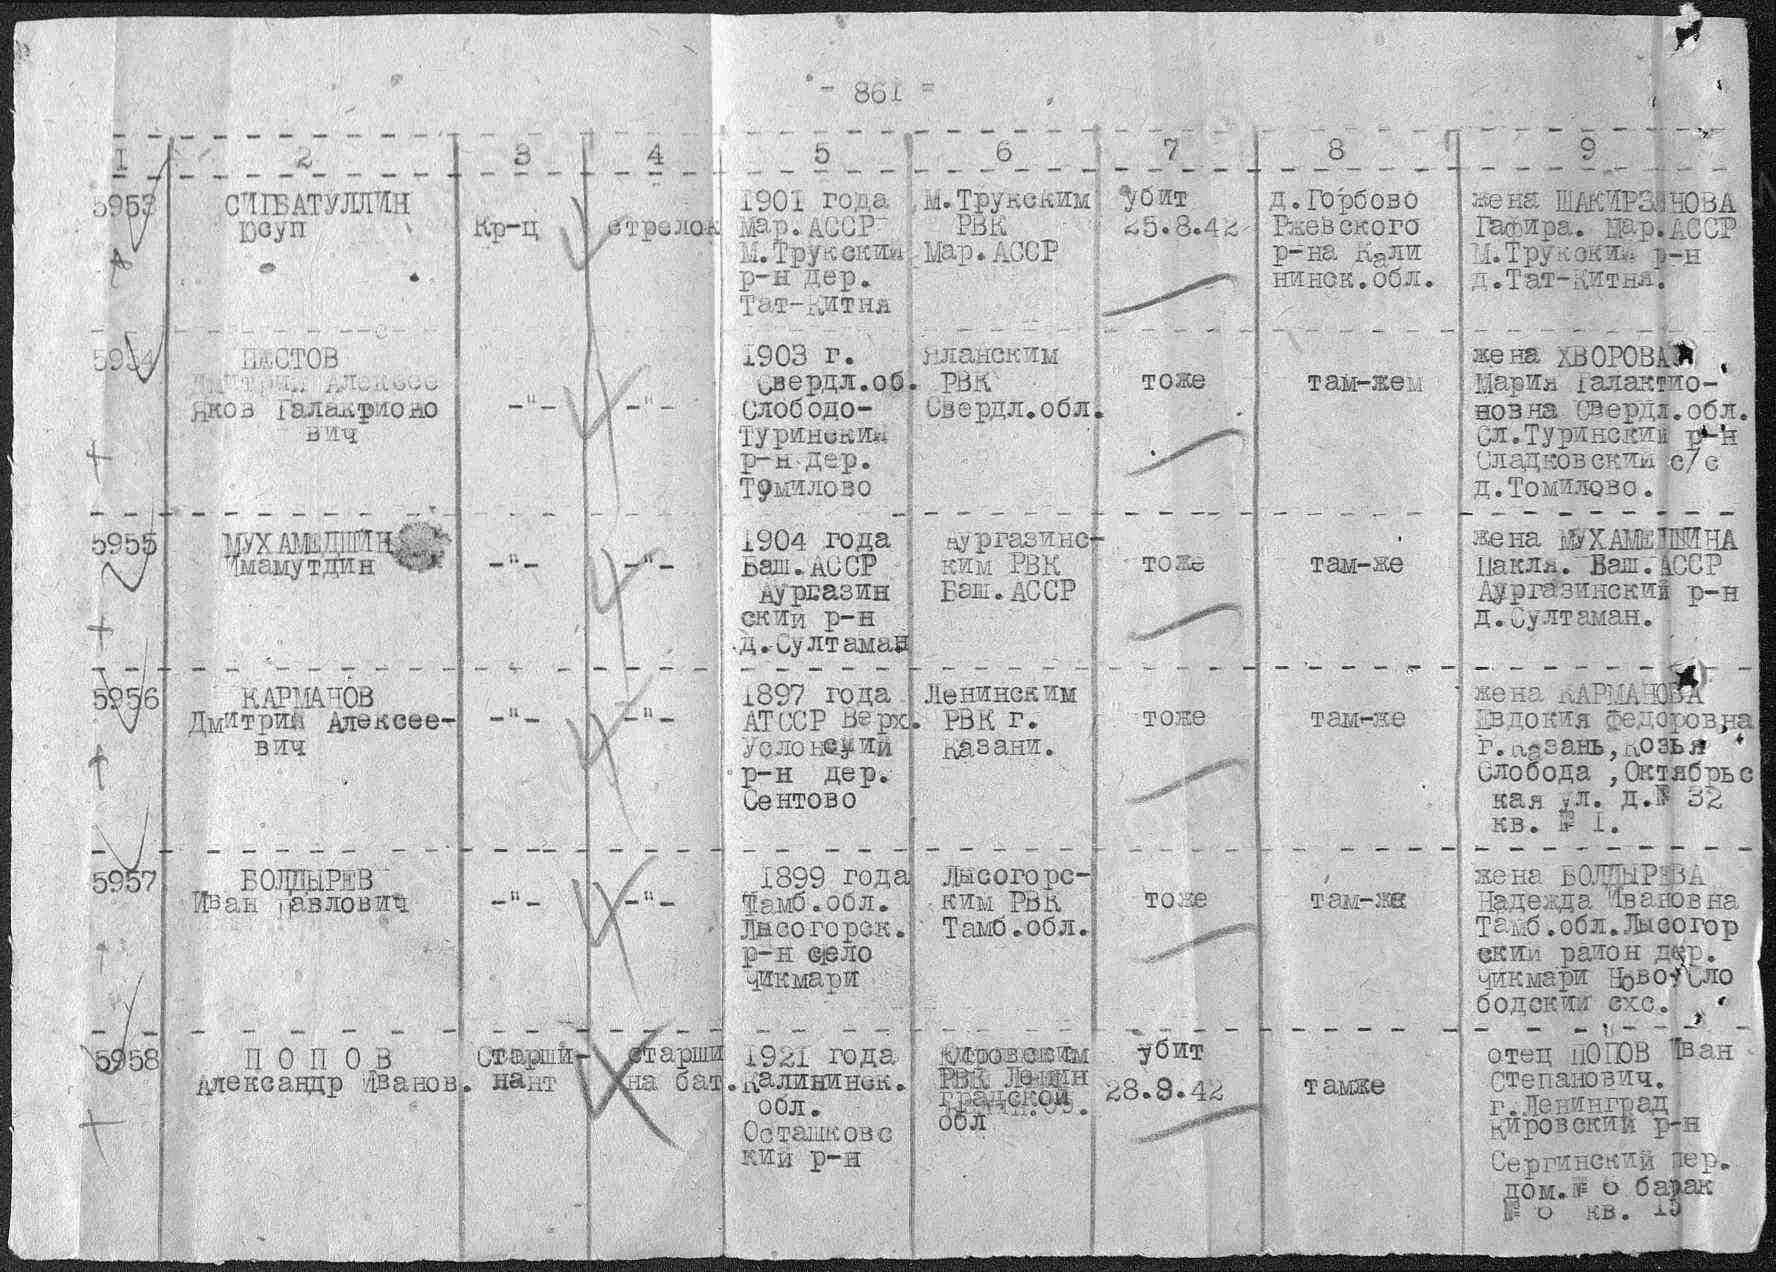 - 861 =
1 2 3 4 5 6 7 8 9
5953
СИГБАТУЛЛИН
Юсуп
Кр-ц
стрелок
1901 года
Мар.АССР
М.Трукский
р-н дер.
Тат-Китня
М.Трукским
РВК
Мар.АССР
убит
25.8.42
д.Горбово
Ржевского
р-на Кали
нинск.обл.
жена ШАКИРЗЯНОВА
Гафира. Мар.АССР
М.Трукский р-н
д.Тат-Китня.
5954
ПАСТОВ
Дмитрий Алексее
Яков Галактионо
вич
-"-
-"-
1903 г.
Свердл.об.
Слободо-
Туринский
р-н дер.
Томилово
Яланским
РВК
Свердл.обл.
тоже
там-жем
жена ХВОРОВА
Мария Галактио-
новна Свердл.обл.
Сл.Туринский р-н
Сладковский с/с
д.Томилово.
5955
МУХАМЕДШИН
Имамутдин
-"-
-"-
1904 года
Баш.АССР
Аургазин
ский р-н
д.Султаман
Аургазинс-
ким РВК
Баш.АССР
тоже
там-же
жена МУХАМЕДШИНА
Пакля. Баш.АССР
Аургазинский р-н
д.Султаман.
5956
КАРМАНОВ
Дмитрий Алексее-
вич
-"-
-"-
1897 года
АТССР Верх.
Услонский
р-н дер.
Сентово
Ленинским
РВК г.
Казани.
тоже
там-же
жена КАРМАНОВА
Евдокия Федоровна
г.Казань,Козья
Слобода ,Октябрьс
кая ул. д.№ 32
кв. № 1.
5957
БОЛДЫРЕВ
Иван Павлович
-"-
-"-
1899 года
Тамб.обл.
Лысогорск.
р-н село
Чикмари
Лысогорс-
ким РВК
Тамб.обл.
тоже
там-же
жена БОЛДЫРЕВА
Надежда Ивановна
Тамб.обл.Лысогор
ский район дер.
Чикмари НовоУсло
бодский схс.
5958
П О П О В
Александр Иванов.
Старши-
нант
старши
на бат.
1921 года
Калининск.
обл.
Осташковс
кий р-н
Кировским
РВК Ленин
градской
обл
убит
28.8.42
тамже
отец ПОПОВ Иван
Степанович.
г.Ленинград
Кировский р-н
Сергинский пер.
дом.№ 6 барак
№ 6 кв. 15